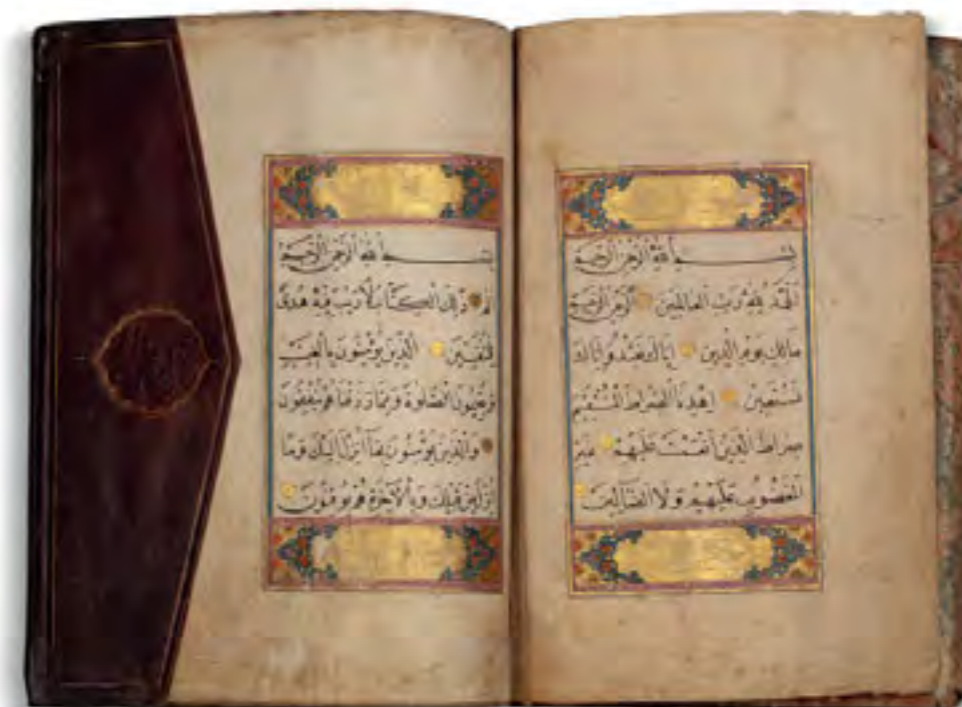 بِسْمِ اللَّهِ الرَّحْمَٰنِ الرَّحِيمِ
الْحَمْدُ لِلَّهِ رَبِّ الْعَالَمِينَ الرَّحْمَٰنِ الرَّحِيمِ
مَالِكِ يَوْمِ الدِّينِ إِيَّاكَ نَعْبُدُ وَإِيَّاكَ
نَسْتَعِينُ اهْدِنَا الصِّرَاطَ الْمُسْتَقِيمَ
صِرَاطَ الَّذِينَ أَنْعَمْتَ عَلَيْهِمْ غَيْرِ
الْمَغْضُوبِ عَلَيْهِمْ وَلَا الضَّالِّينَ
بِسْمِ اللَّهِ الرَّحْمَٰنِ الرَّحِيمِ
الم ذَٰلِكَ الْكِتَابُ لَا رَيْبَ فِيهِ هُدًى
لِلْمُتَّقِينَ الَّذِينَ يُؤْمِنُونَ بِالْغَيْبِ
وَيُقِيمُونَ الصَّلَوٰةَ وَمِمَّا رَزَقْنَاهُمْ يُنْفِقُونَ
وَالَّذِينَ يُؤْمِنُونَ بِمَا أُنْزِلَ إِلَيْكَ وَمَا
أُنْزِلَ مِنْ قَبْلِكَ وَبِالْآخِرَةِ هُمْ يُوقِنُونَ